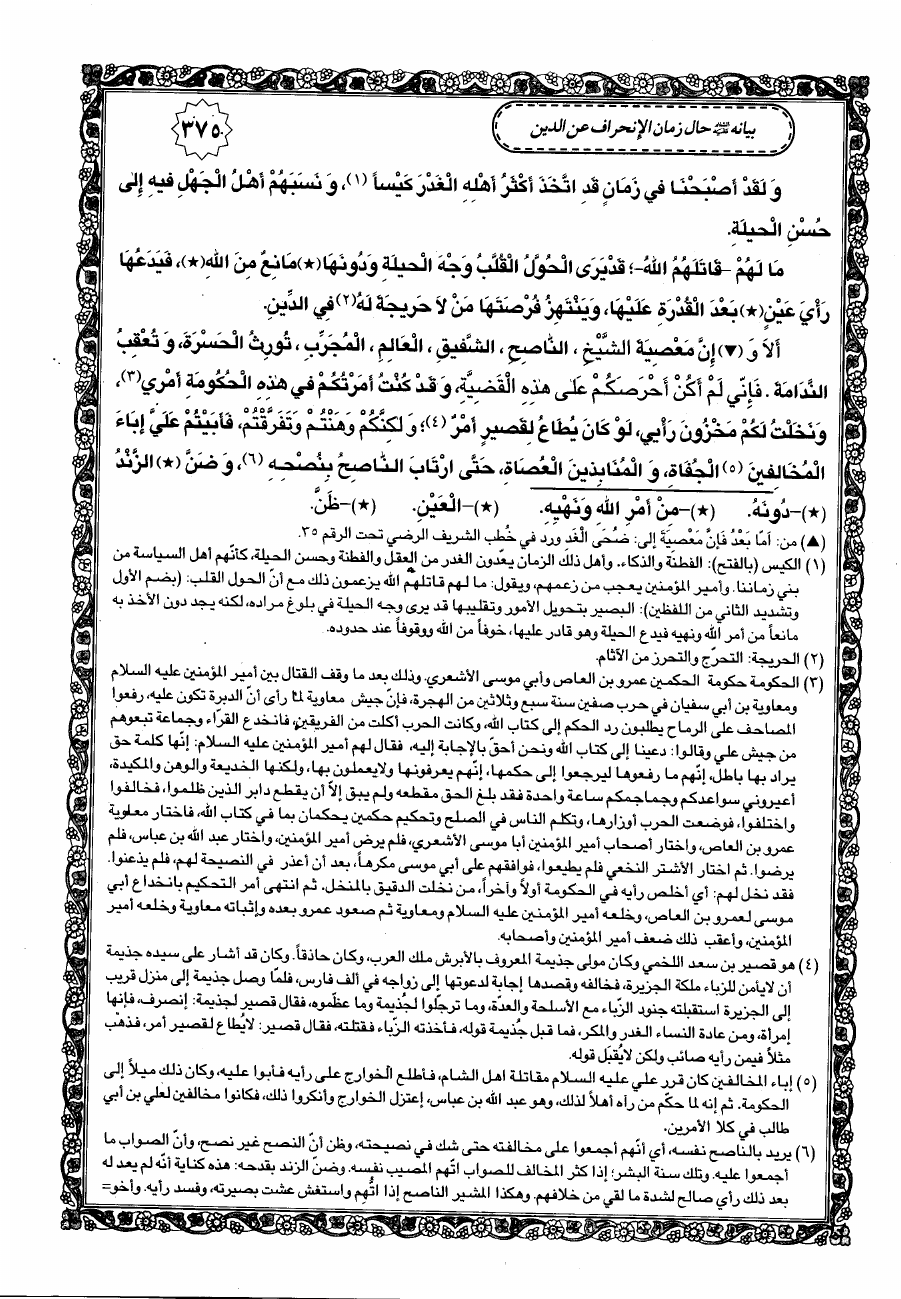 بيانه عليه السلام حال زمان الإنحراف عن الدين
٣٧٥
وَ لَقَدْ أَصْبَحْنَا في زَمَانٍ قَدِ اتَّخَذَ أَكْثَرُ أَهْلِهِ الْغَدْرَ كَيْساً (١)، وَ نَسَبَهُمْ أَهْلُ الْجَهْلِ فيهِ إِلى
حُسْنِ الْحيلَةِ.
مَا لَهُمْ –قَاتَلَهُمُ اللهُ–؛ قَدْ يَرَى الْحُوَّلُ الْقُلَّبُ وَجْهَ الْحيلَةِ وَدُونَهَا(★) مَانِعٌ مِنَ اللهِ(★)، فَيَدَعُهَا
رَأْيَ عَيْنٍ(★) بَعْدَ الْقُدْرَةِ عَلَيْهَا، وَيَنْتَهِزُ فُرْصَتَهَا مَنْ لاَ حَريجَةَ لَهُ(٢) فِي الدّينِ.
أَلاَ وَ (▼) إِنَّ مَعْصِيَةَ الشَّيْخِ ، النَّاصِحِ ، الشَّفيقِ ، الْعَالِمِ ، الْمُجَرِّبِ ، تُورِثُ الْحَسْرَةَ، وَ تُعْقِبُ
النَّدَامَةَ . فَإِنّي لَمْ أَكُنْ أَحْرَصَكُمْ عَلى هذِهِ الْقَضِيَّةِ، وَ قَدْ كُنْتُ أَمَرْتُكُمْ في هذِهِ الْحُكُومَةِ أَمْري(٣)،
وَنَخَلْتُ لَكُمْ مَخْزُونَ رَأْيي، لَوْ كَانَ يُطَاعُ لِقَصيرٍ أَمْرٌ (٤)؛ وَ لكِنَّكُمْ وَهَنْتُمْ وَتَفَرَّقْتُمْ، فَأَبَيْتُمْ عَلَيَّ إِبَاءَ
الْمُخَالِفينَ (٥) الْجُفَاةِ، وَ الْمُنَابِذينَ الْعُصَاةِ، حَتَّى ارْتَابَ النَّاصِحُ بِنُصْحِهِ (٦)، وَ ضَنَّ (★) الزَّنْدُ
(★)–دُونَهُ. (★)–مِنْ أَمْرِ اللهِ وَنَهْيِهِ. (★)–الْعَيْنِ. (★)–ظَنَّ.
(▲) من: أمّا بَعْدُ فَإِنَّ مَعْصِيَةَ إلى: ضُحَى الْغَد ورد في خُطب الشريف الرضي تحت الرقم ٣٥.
(١) الكيس (بالفتح): الفطنة والذكاء. وأهل ذلك الزمان يعدّون الغدر من العقل والفطنة وحسن الحيلة، كأنّهم أهل السياسة من
بني زماننا. وأمير المؤمنين يعجب من زعمهم، ويقول: ما لهم قاتلهم الله يزعمون ذلك مع أنّ الحول القلب: (بضم الأول
وتشديد الثاني من اللفظين): البصير بتحويل الأمور وتقليبها قد يرى وجه الحيلة في بلوغ مراده، لكنه يجد دون الأخذ به
مانعاً من أمر الله ونهيه فيدع الحيلة وهو قادر عليها، خوفاً من الله ووقوفاً عند حدوده.
(٢) الحريجة: التحرّج والتحرز من الآثام.
(٣) الحكومة حكومة الحكمين عمرو بن العاص وأبي موسى الأشعري. وذلك بعد ما وقف القتال بين أمير المؤمنين عليه السلام
ومعاوية بن أبي سفيان في حرب صفين سنة سبع وثلاثين من الهجرة، فإنّ جيش معاوية لمّا رأى أنّ الدبرة تكون عليه، رفعوا
المصاحف على الرماح يطلبون رد الحكم إلى كتاب الله، وكانت الحرب أكلت من الفريقين، فانخدع القرّاء وجماعة تبعوهم
من جيش علي وقالوا: دعينا إلى كتاب الله ونحن أحقّ بالإجابة إليه، فقال لهم أمير المؤمنين عليه السلام: إنّها كلمة حق
يراد بها باطل، إنّهم ما رفعوها ليرجعوا إلى حكمها، إنّهم يعرفونها ولايعملون بها، ولكنها الخديعة والوهن والمكيدة،
أعيروني سواعدكم وجماجمكم ساعة واحدة فقد بلغ الحق مقطعه ولم يبق إلاّ أن يقطع دابر الذين ظلموا، فخالفوا
واختلفوا، فوضعت الحرب أوزارها، وتكلم الناس في الصلح وتحكيم حكمين يحكمان بما في كتاب الله، فاختار معاوية
عمرو بن العاص، واختار أصحاب أمير المؤمنين أبا موسى الأشعري، فلم يرض أمير المؤمنين، واختار عبد الله بن عباس، فلم
يرضوا. ثم اختار الأشتر النخعي فلم يطيعوا، فوافقهم على أبي موسى مكرهاً، بعد أن أعذر في النصيحة لهم، فلم يذعنوا.
فقد نخل لهم: أي أخلص رأيه في الحكومة أولاً وآخراً، من نخلت الدقيق بالمنخل. ثم انتهى أمر التحكيم بانخداع أبي
موسى لعمرو بن العاص، وخلعه أمير المؤمنين عليه السلام ومعاوية ثم صعود عمرو بعده وإثباته معاوية وخلعه أمير
المؤمنين، وأعقب ذلك ضعف أمير المؤمنين وأصحابه.
(٤) هو قصير بن سعد اللخمي وكان مولى جذيمة المعروف بالأبرش ملك العرب، وكان حاذقاً. وكان قد أشار على سيده جذيمة
أن لايأمن للزباء ملكة الجزيرة، فخالفه وقصدها إجابة لدعوتها إلى زواجه في ألف فارس، فلمّا وصل جذيمة إلى منزل قريب
إلى الجزيرة استقبلته جنود الزّباء مع الأسلحة والعدّة، وما ترجّلوا لجُذيمة وما عظّموه، فقال قصير لجذيمة: إنصرف، فإنها
إمرأة، ومن عادة النساء الغدر والمكر، فما قبل جُذيمة قوله، فأخذته الزّباء فقتلته، فقال قصير: لايُطاع لقصير أمر، فذهب
مثلاً فيمن رأيه صائب ولكن لايُقبَل قوله.
(٥) إباء المخالفين كان قرر علي عليه السلام مقاتلة اهل الشام، فأطلع الخوارج على رأيه فأبوا عليه، وكان ذلك ميلاً إلى
الحكومة. ثم إنه لما حكّم من رآه أهلاً لذلك، وهو عبد الله بن عباس، إعتزل الخوارج وأنكروا ذلك، فكانوا مخالفين لعلي بن أبي
طالب في كلا الأمرين.
(٦) يريد بالناصح نفسه، أي أنّهم أجمعوا على مخالفته حتى شك في نصيحته، وظن أنّ النصح غير نصح، وأنّ الصواب ما
أجمعوا عليه. وتلك سنة البشر؛ إذا كثر المخالف للصواب اتّهم المصيب نفسه. وضنّ الزند بقدحه: هذه كناية أنّه لم يعد له
بعد ذلك رأي صالح لشدة ما لقي من خلافهم. وهكذا المشير الناصح إذا اتُّهم واستغش عشت بصيرته، وفسد رأيه. وأخو=